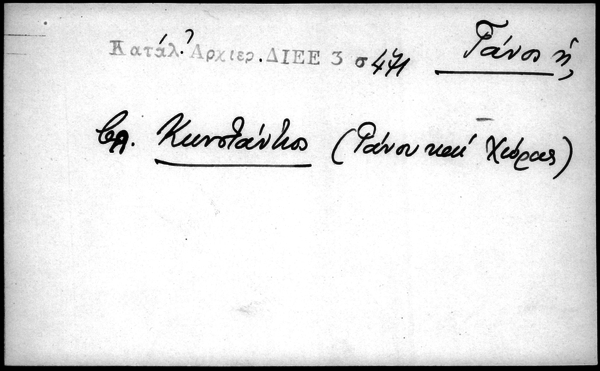 Κατάλ. Ἀρχιερ. ΔΙΕΕ 3 σ 471 Γάνος ἡ,
βλ. Κωνστάντιος (Γάνου καὶ Χώρας)